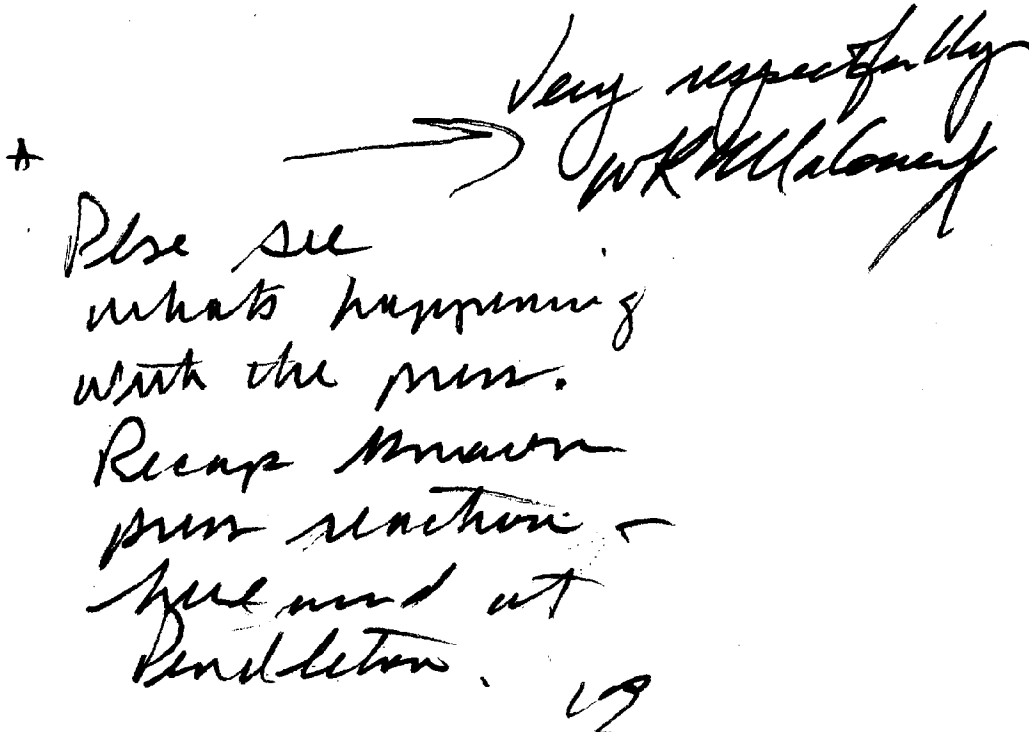 Very respectfully
WR Maloney
Plse see
whats happening
with the press.
Recap known
press reaction –
here and at
Pendleton.